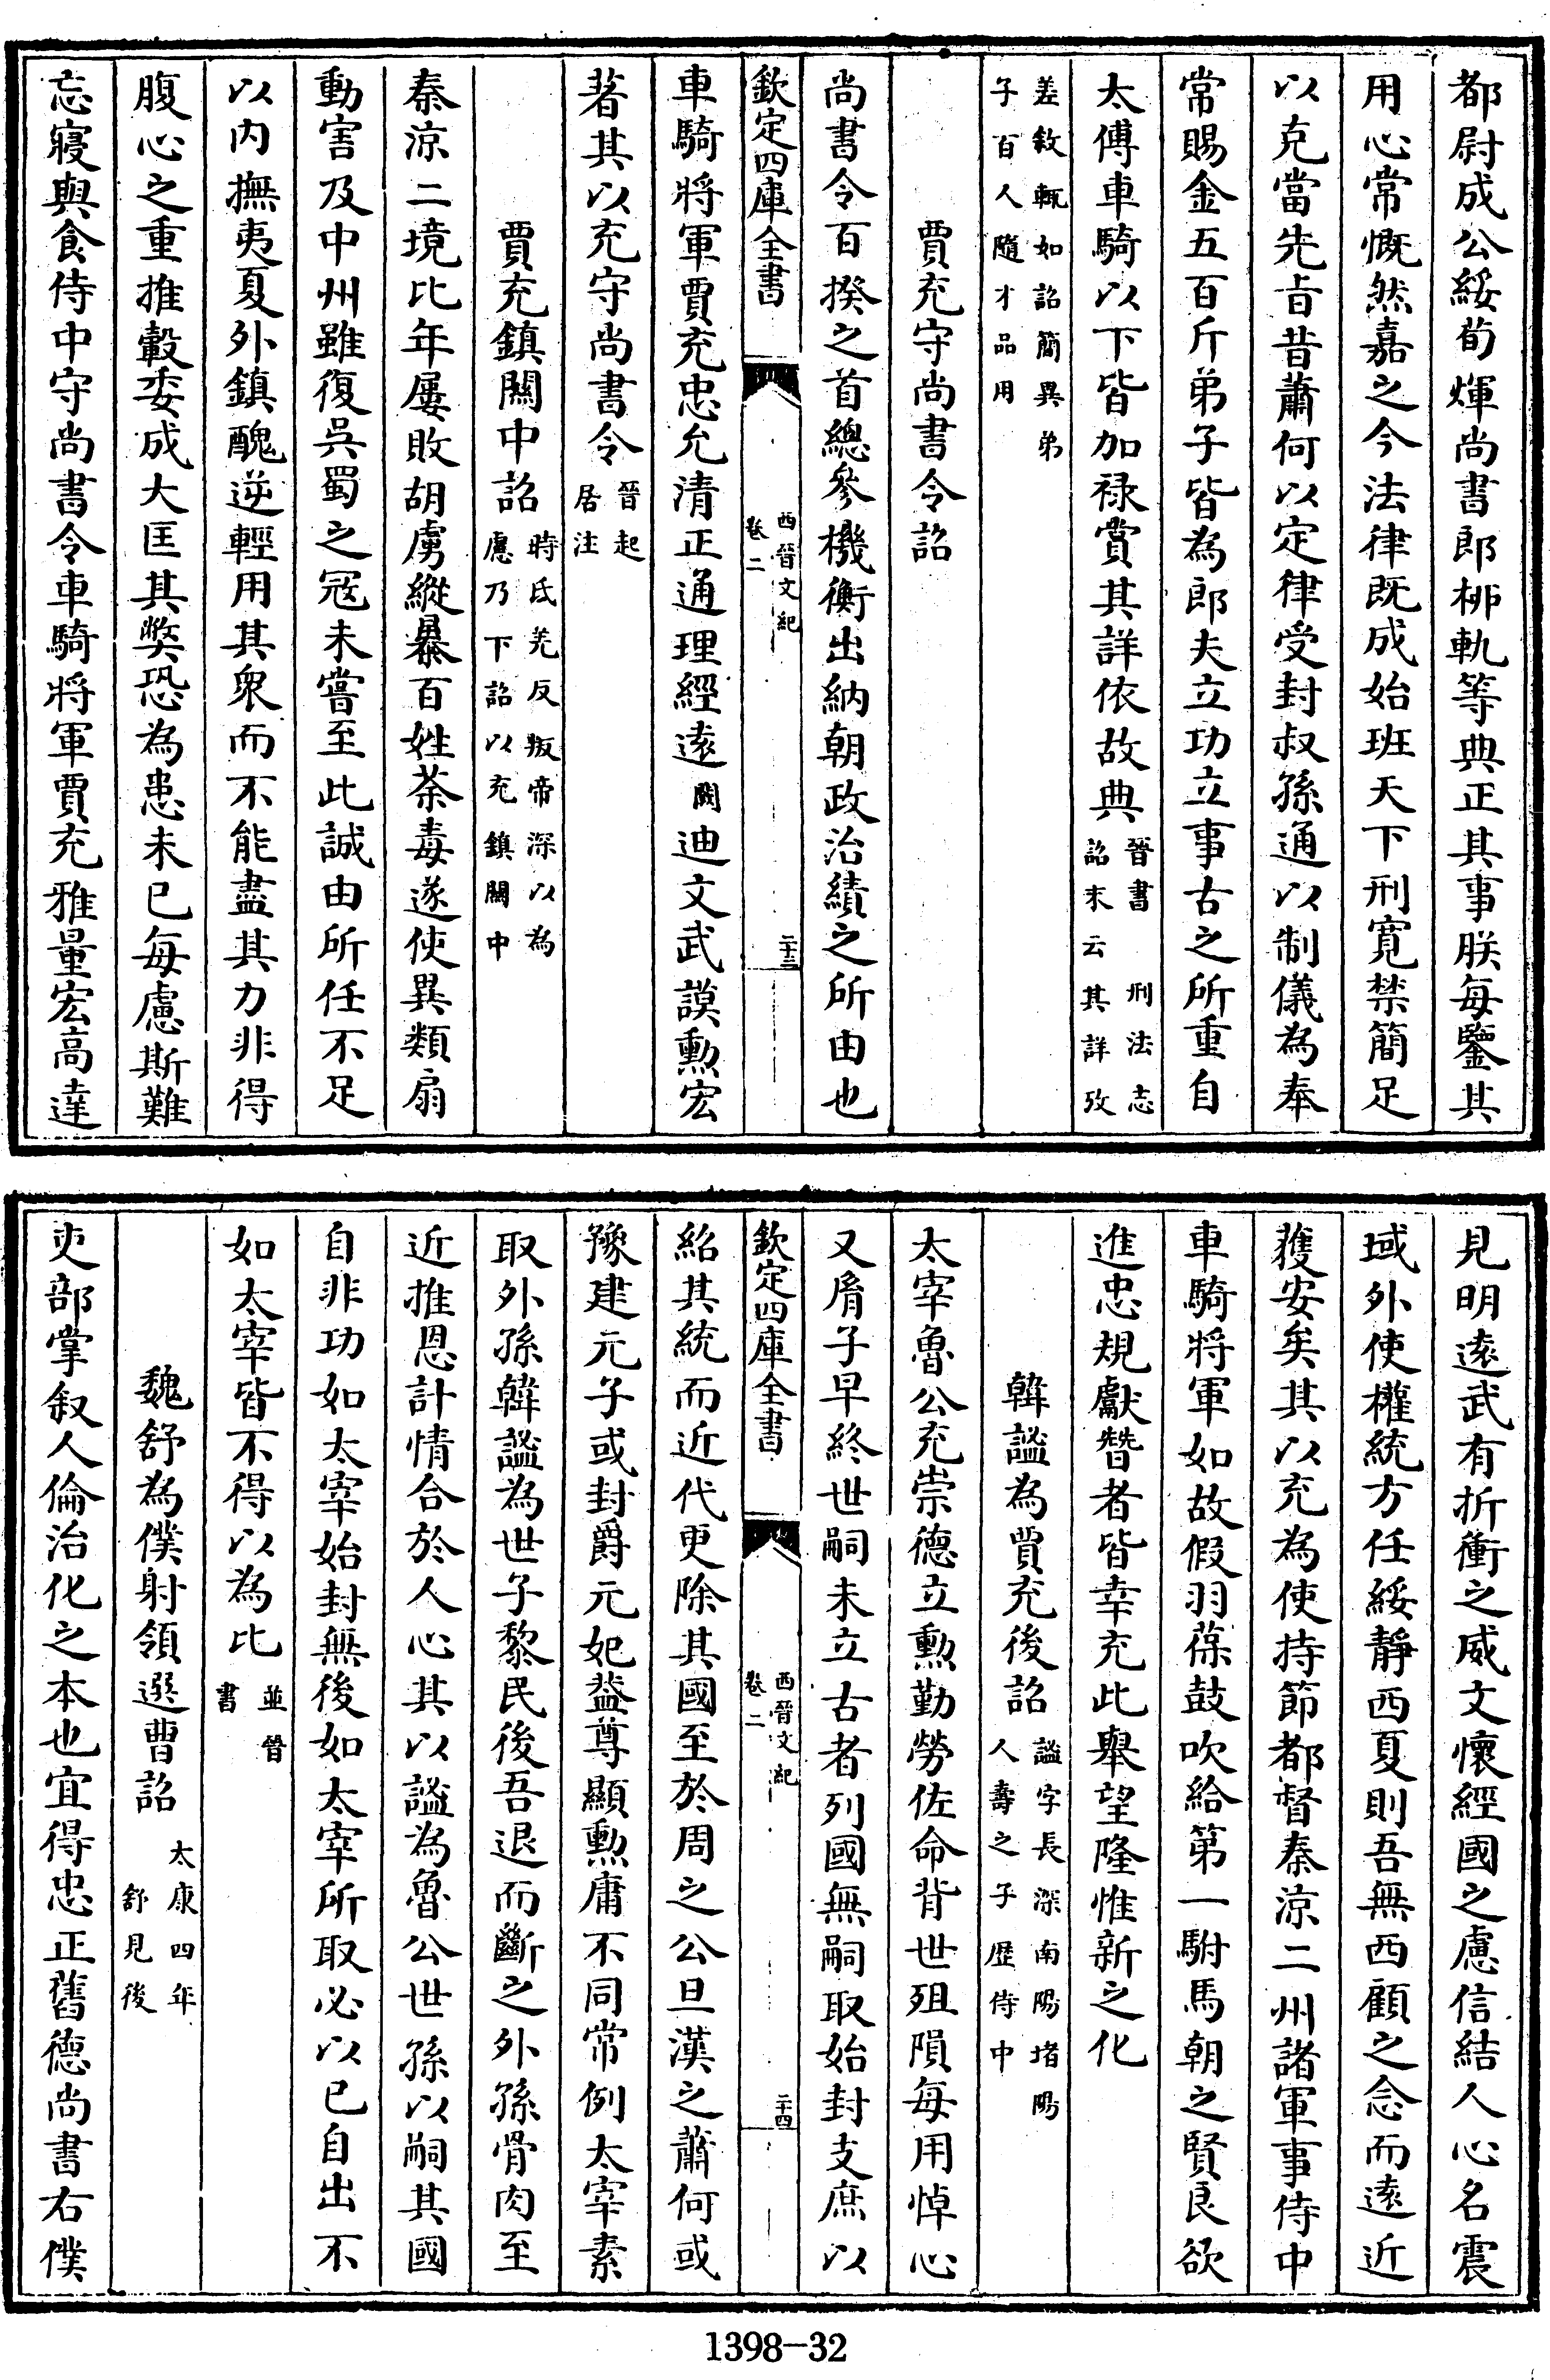 都尉成公綏荀煇尚書郎桺軌等典正其事朕每鑒其
用心常慨然嘉之今法律既成始班天下刑寛禁簡足
以克當先㫖昔蕭何以定律受封叔孫通以制儀為奉
常賜金五百斤弟子皆為郎夫立功立事古之所重自
太傅車騎以下皆加禄賞其詳依故典晉書刑法志
詔末云其詳攷
差敘輒如詔簡異弟
子百人隨才品用
賈充守尚書令詔
尚書令百揆之首總參機衡出納朝政治績之所由也
欽定四庫全書
西晉文紀
卷二
二十三
車騎將軍賈充忠允清正通理經逺闕迪文武謨勲宏
著其以充守尚書令晉起
居注
賈充鎮闗中詔時氐羌反叛帝深以為
慮乃下詔以充鎮闗中
秦涼二境比年屢敗胡虜縱暴百姓荼毒遂使異類扇
動害及中州雖復吳蜀之冦未嘗至此誠由所任不足
以内撫夷夏外鎮醜逆輕用其衆而不能盡其力非得
腹心之重推轂委成大匡其獘恐為患未已每慮斯難
忘寢與食侍中守尚書令車騎將軍賈充雅量宏髙達
見明逺武有折衝之威文懷經國之慮信結人心名震
域外使權統方任綏靜西夏則吾無西顧之念而逺近
獲安矣其以充為使持節都督秦涼二州諸軍事侍中
車騎將軍如故假羽葆鼓吹給第一駙馬朝之賢良欲
進忠規獻替者皆幸充此舉望隆惟新之化
韓謐為賈充後詔謐字長深南陽堵陽
人壽之子歴侍中
太宰魯公充崇德立勲勤勞佐命背世殂隕每用悼心
又胤子早終世嗣未立古者列國無嗣取始封支庶以
欽定四庫全書
西晉文紀
卷二
二十四
紹其統而近代更除其國至於周之公旦漢之蕭何或
豫建元子或封爵元妃葢尊顯勲庸不同常例太宰素
取外孫韓謐為世子黎民後吾退而斷之外孫骨肉至
近推恩計情合於人心其以謐為魯公世孫以嗣其國
自非功如太宰始封無後如太宰所取必以已自出不
如太宰皆不得以為比並晉
書
魏舒為僕射領選曹詔太康四年
舒見後
吏部掌叙人倫治化之本也宜得忠正舊德尚書右僕
1398-32